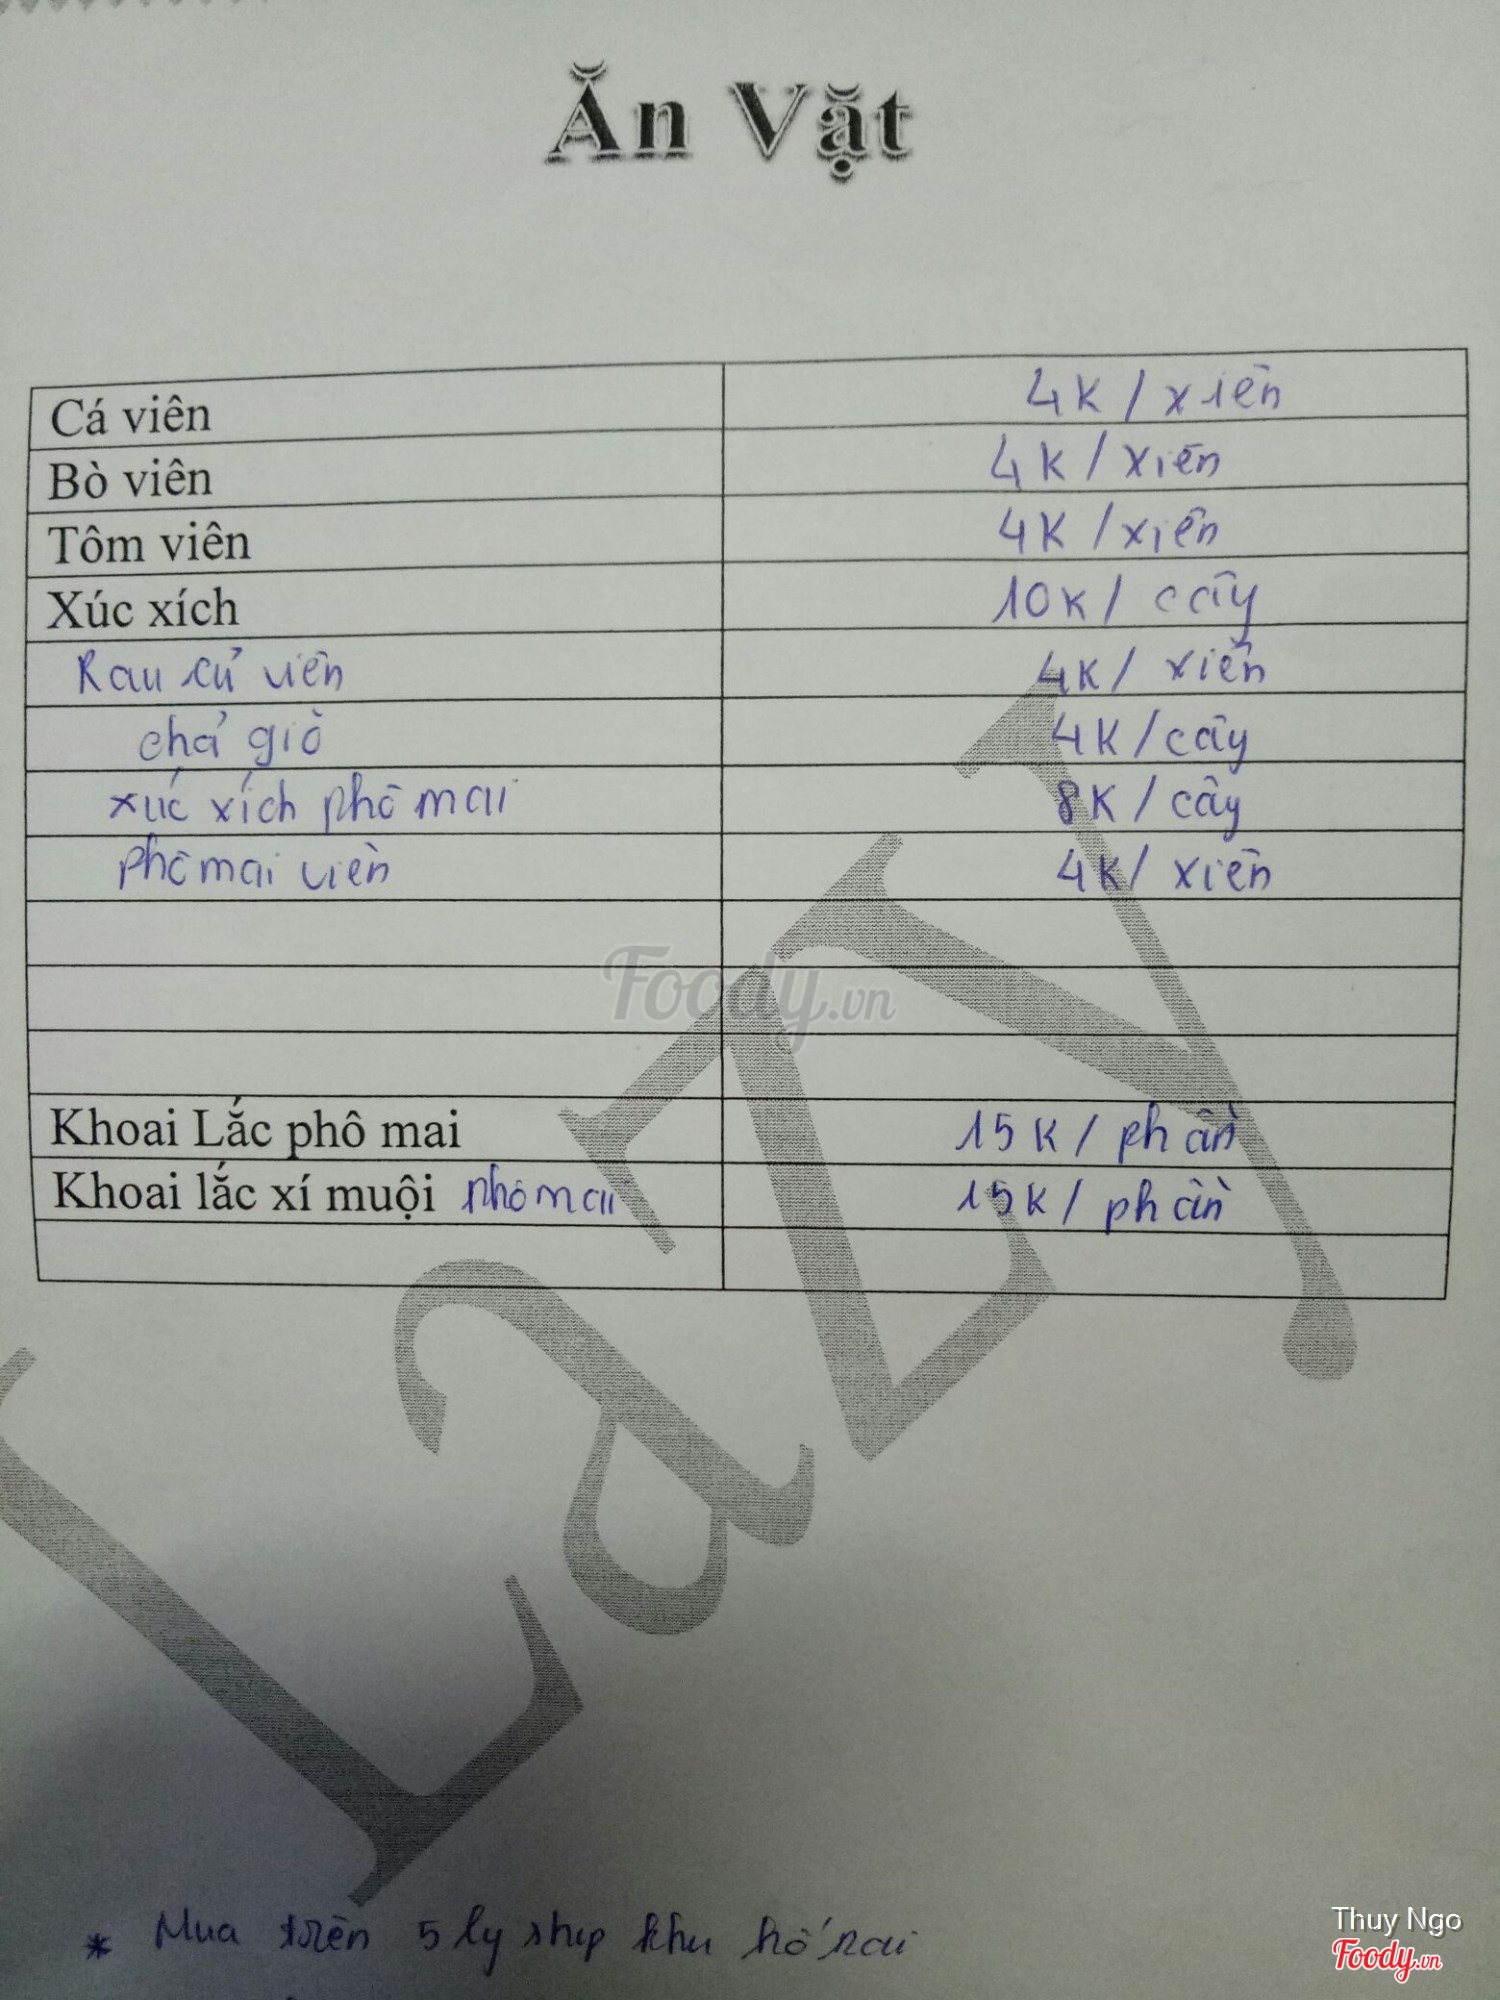 Ăn Vặt
Cá viên 4K / xiên
Bò viên 4K / xiên
Tôm viên 4K / xiên
Xúc xích 10K / cây
Rau củ viên 4K / xiên
chả giò 4K / cây
xúc xích phô mai 8K / cây
phô mai viên 4K / xiên
Foody.vn
Khoai Lắc phô mai 15K / phần
Khoai lắc xí muội phô mai 15K / phần
LaZY
* Mua trên 5 ly ship khu hố nai
Thuy Ngo
Foody.vn